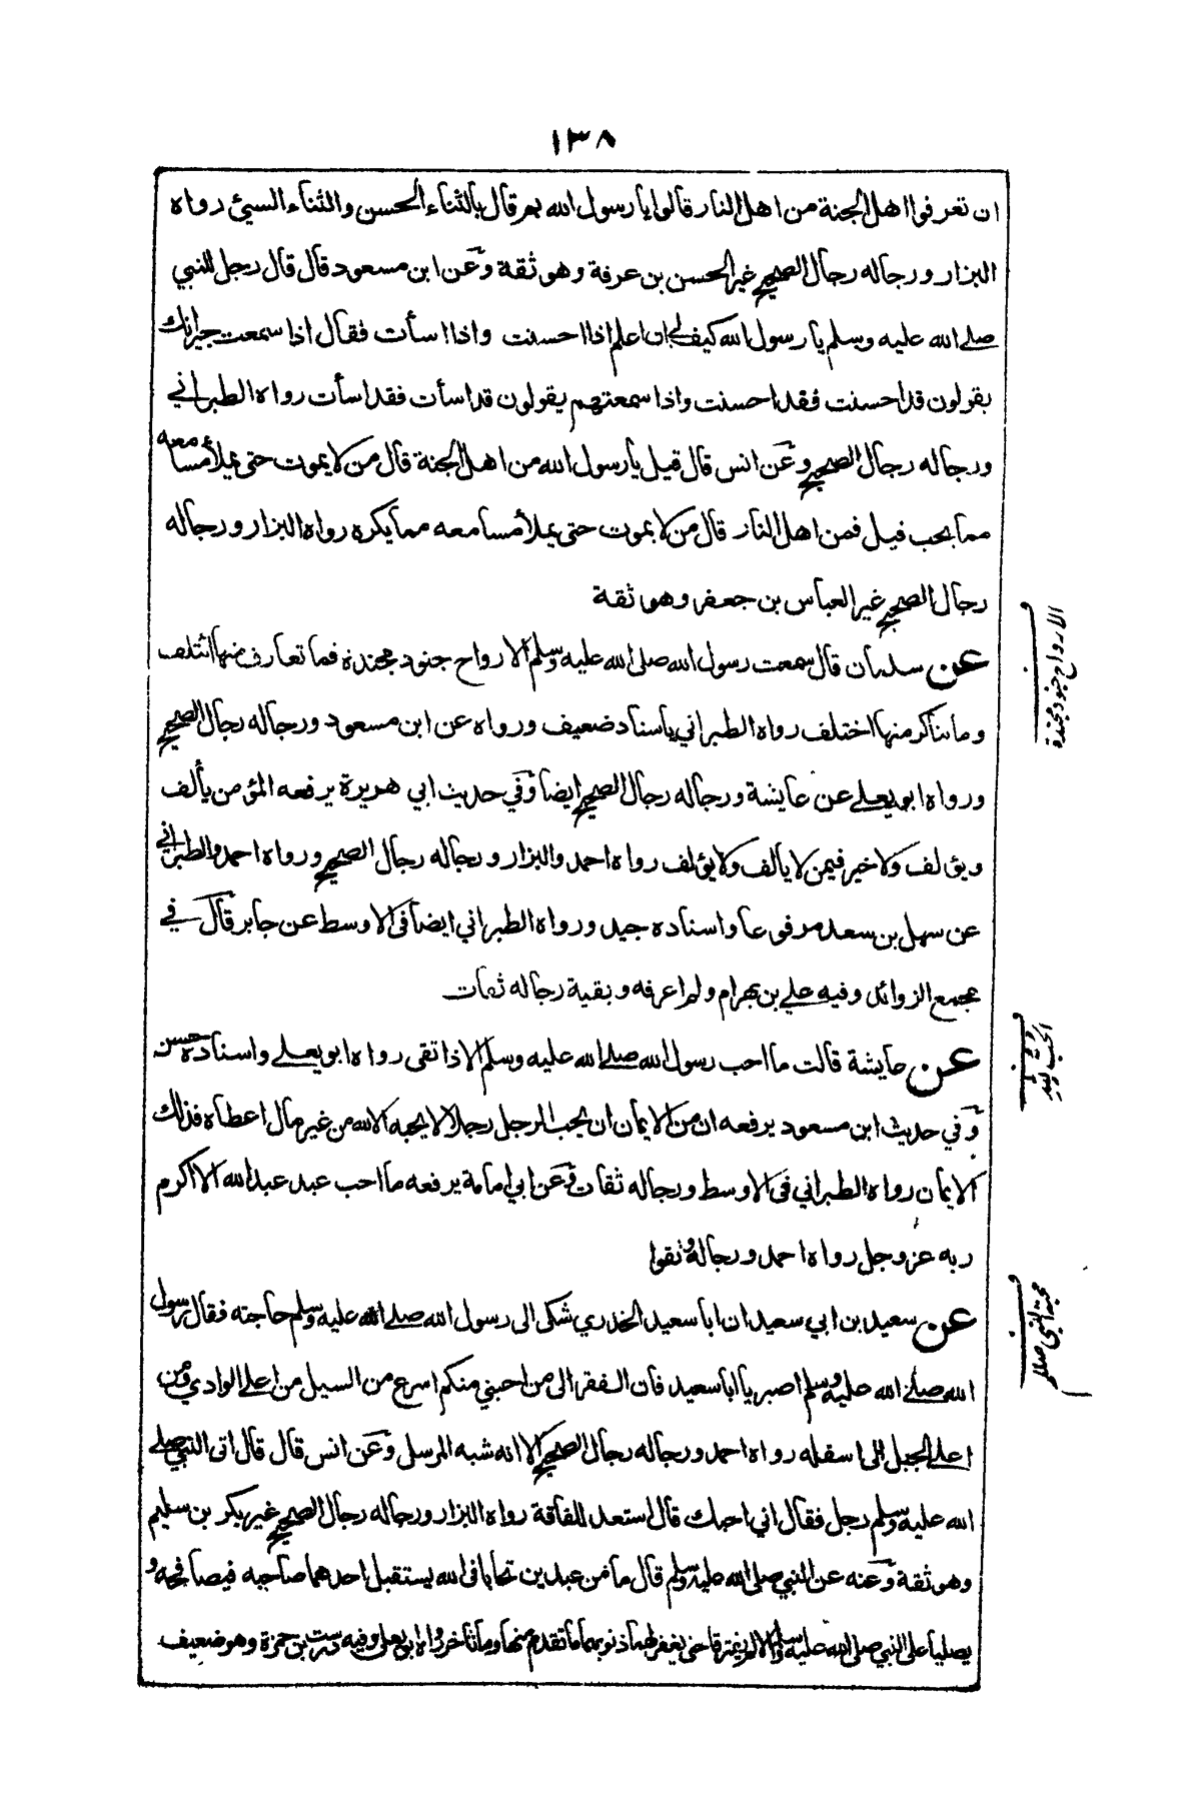 ١٣٨
ان تعرفوا اهل الجنة من اهل النار قالوا يا رسول الله بم قال بالثناء الحسن والثناء السيئ رواه
البزار ورجاله رجال الصحيح غير الحسن بن عرفة وهو ثقة وعن ابن مسعود قال قال رجل للنبي
صلى الله عليه وسلم يا رسول الله كيف لي ان اعلم اذا احسنت واذا اسأت فقال اذا سمعت جيرانك
يقولون قد احسنت فقد احسنت واذا سمعتهم يقولون قد اسأت فقد اسأت رواه الطبراني
ورجاله رجال الصحيح وعن انس قال قيل يا رسول الله من اهل الجنة قال من لا يموت حتى يملأ مسامعه
مما يحب قيل فمن اهل النار قال من لا يموت حتى يملأ مسامعه مما يكره رواه البزار ورجاله
رجال الصحيح غير العباس بن جعفر وهو ثقة
عن سلمان قال سمعت رسول الله صلى الله عليه وسلم الارواح جنود مجندة فما تعارف منها ائتلف
وما تناكر منها اختلف رواه الطبراني باسناد ضعيف ورواه عن ابن مسعود ورجاله رجال الصحيح
ورواه ابو يعلى عن عايشة ورجاله رجال الصحيح ايضا وفي حديث ابي هريرة يرفعه المؤمن يألف
ويؤلف ولا خير فيمن لا يألف ولا يؤلف رواه احمد والبزار ورجاله رجال الصحيح ورواه احمد والطبراني
عن سهل بن سعد مرفوعا واسناده جيد ورواه الطبراني ايضا في الاوسط عن جابر قال في
مجمع الزوائد وفيه علي بن بهرام ولم اعرفه وبقية رجاله ثقات
عن عايشة قالت ما احب رسول الله صلى الله عليه وسلم الا ذا تقى رواه ابو يعلى واسناده حسن
وفي حديث ابن مسعود يرفعه ان من الايمان ان يحب الرجل رجلا لا يحبه الا لله من غير مال اعطاه فذلك
الايمان رواه الطبراني في الاوسط ورجاله ثقات وعن ابي امامة يرفعه ما احب عبد عبدا لله الا اكرم
ربه عز وجل رواه احمد ورجاله وثقوا
عن سعيد بن ابي سعيد ان ابا سعيد الخدري شكى الى رسول الله صلى الله عليه وسلم حاجته فقال رسول
الله صلى الله عليه وسلم اصبر يا ابا سعيد فان الفقر الى من احبني منكم اسرع من السيل من اعلى الوادي ومن
اعلى الجبل الى اسفله رواه احمد ورجاله رجال الصحيح الا انه شبه المرسل وعن انس قال قال اتى النبي صلى
الله عليه وسلم رجل فقال اني احبك قال استعد للفاقة رواه البزار ورجاله رجال الصحيح غير بكر بن سليم
وهو ثقة وعنه عن النبي صلى الله عليه وسلم قال ما من عبدين تحابا في الله يستقبل احدهما صاحبه فيصافحه و
يصليا على النبي صلى الله عليه وسلم الا لم يفترقا حتى يغفر لهما ذنوبهما ما تقدم منها وما تأخر رواه ابو يعلى وفيه درست بن حمزة وهو ضعيف
الارواح جنود مجندة
الحب لله
محبة النبي صللم